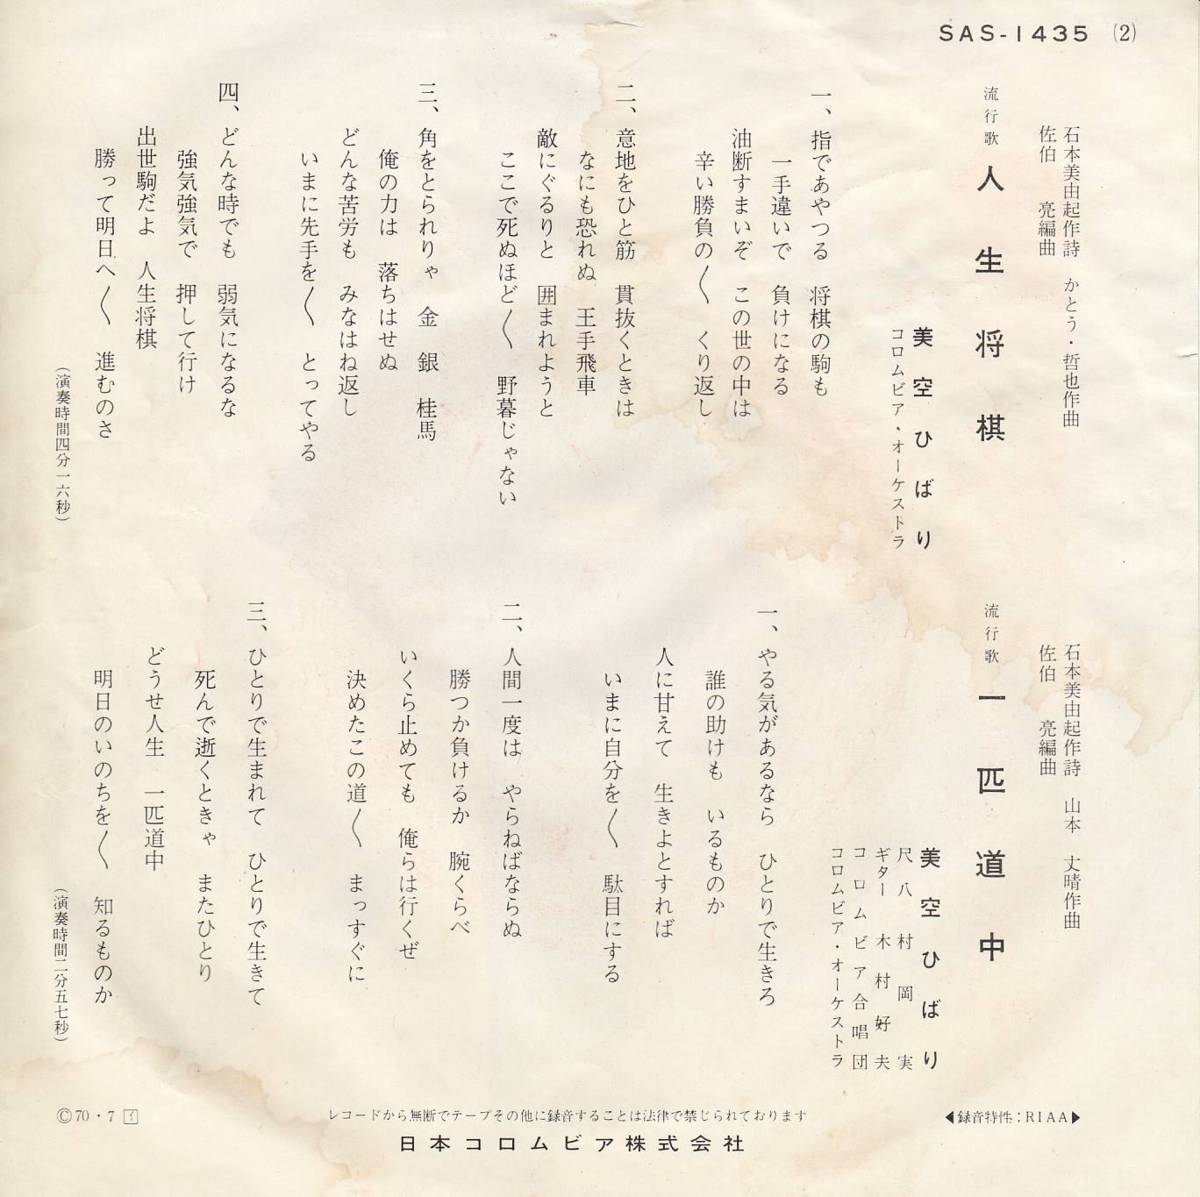 SAS-1435 (2)
石本美由起作詩 かとう・哲也作曲
佐伯 亮編曲
流行歌 人生将棋
美空ひばり
コロムビア・オーケストラ
一、指であやつる 将棋の駒も
一手違いで 負けになる
油断すまいぞ この世の中は
辛い勝負の〱 くり返し
二、意地をひと筋 貫抜くときは
なにも恐れぬ 王手飛車
敵にぐるりと 囲まれようと
ここで死ぬほど〱 野暮じゃない
三、角をとられりゃ 金 銀 桂馬
俺の力は 落ちはせぬ
どんな苦労も みなはね返し
いまに先手を〱 とってやる
四、どんな時でも 弱気になるな
強気強気で 押して行け
出世駒だよ 人生将棋
勝って明日へ〱 進むのさ
(演奏時間四分一六秒)
石本美由起作詩 山本 丈晴作曲
佐伯 亮編曲
流行歌 一匹道中
美空ひばり
尺八 村岡 実
ギター 木村好夫
コロムビア合唱団
コロムビア・オーケストラ
一、やる気があるなら ひとりで生きろ
誰の助けも いるものか
人に甘えて 生きよとすれば
いまに自分を〱 駄目にする
二、人間一度は やらねばならぬ
勝つか負けるか 腕くらべ
いくら止めても 俺らは行くぜ
決めたこの道〱 まっすぐに
三、ひとりで生まれて ひとりで生きて
死んで逝くときゃ またひとり
どうせ人生 一匹道中
明日のいのちを〱 知るものか
(演奏時間二分五七秒)
©70・7
レコードから無断でテープその他に録音することは法律で禁じられております
◀録音特性:RIAA▶
日本コロムビア株式会社